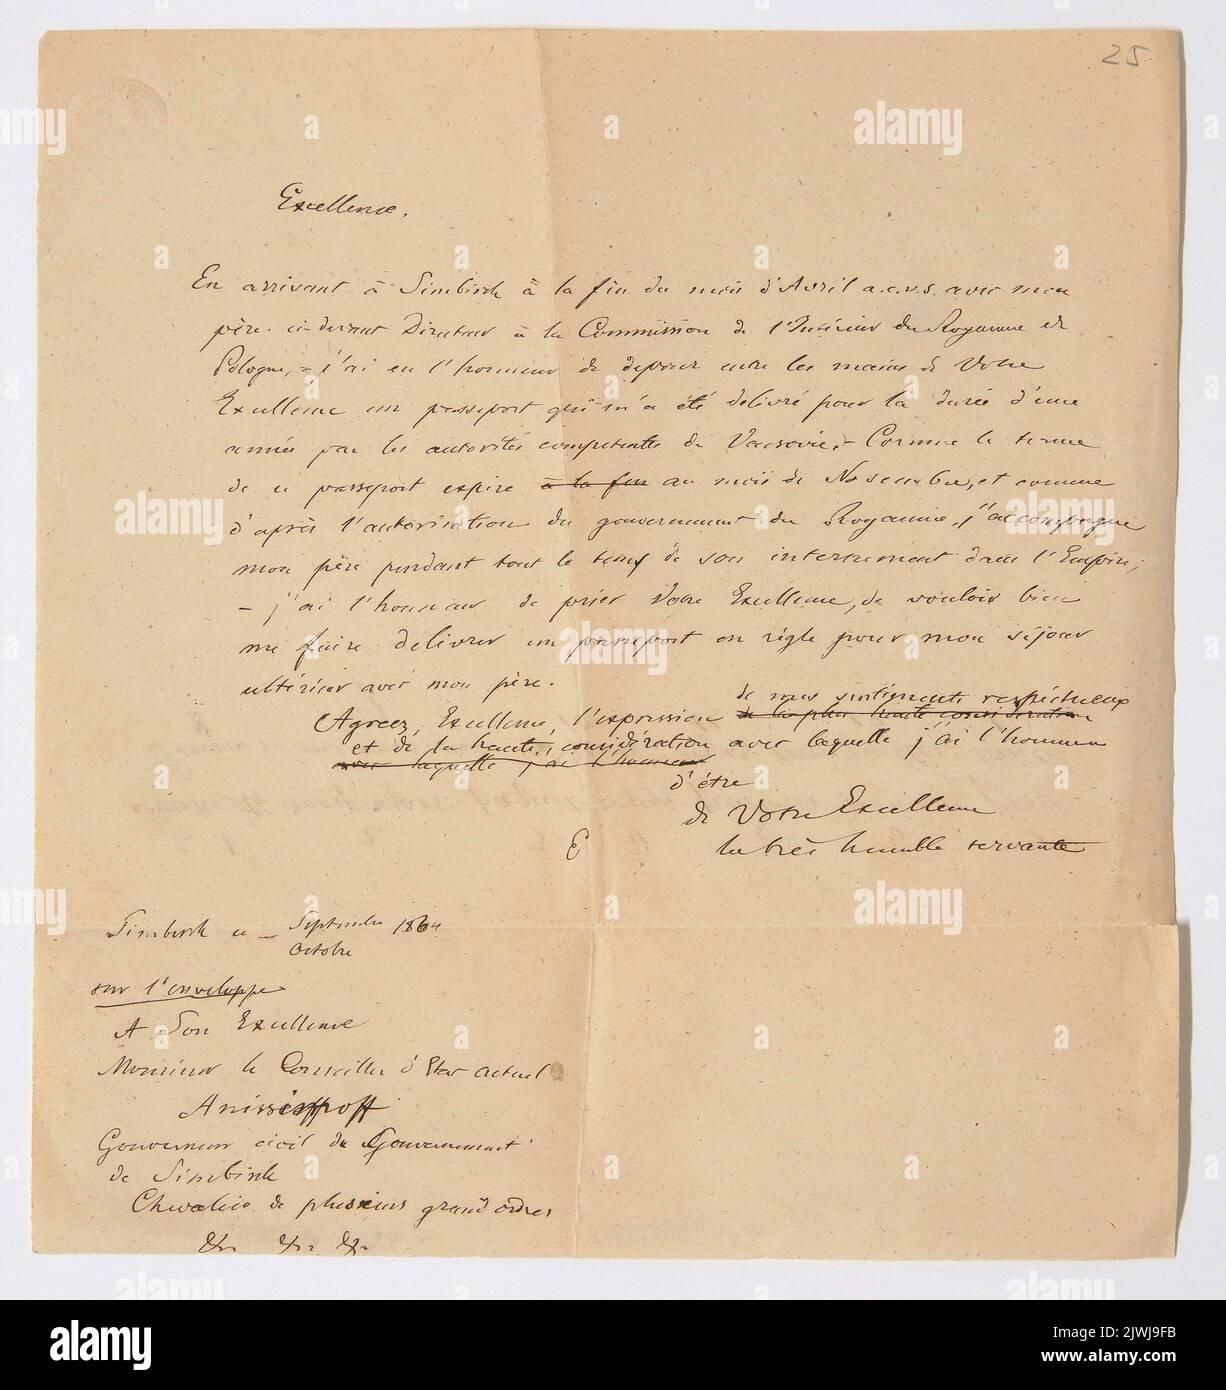 25
Excellence.
En arrivant à Simbirsk à la fin du mois d'Avril a.c.v.s. avec mon
père. ci-devant Directeur à la Commission de l'Intérieur du Royaume de
Pologne, - j'ai eu l'honneur de deposer entre les mains de Votre
Excellence un passeport qui m'a été delivré pour la durée d'une
année par les autorités competentes de Varsovie. - Comme le terme
de ce passeport expire à la fin au mois de Novembre, et comme
d'après l'autorisation du gouvernement du Royaume, j'accompagne
mon père pendant tout le tems de son internement dans l'Empire,
- j'ai l'honneur de prier Votre Excellence, de vouloir bien
me faire delivrer un passeport en règle pour mon séjour
ultérieur avec mon père.
de mes sentiments respéctueux
Agreez, Excellence, l'expression de la plus haute consideration
et de la haute considération avec laquelle j'ai l'honneur
avec laquelle j'ai l'honneur
d'être
de Votre Excellence
la très humble servante
E
Simbirsk ce - Septembre 1864
Octobre
sur l'enveloppe
A Son Excellence
Monsieur le Conseiller d'Etat actuel
Anissimoff
Gouverneur civil du Gouvernement
de Simbirsk
Chevalier de plusieurs grand ordres
&c. &c. &c.
alamy
a
Image ID: 2WJ9JFB
www.alamy.com